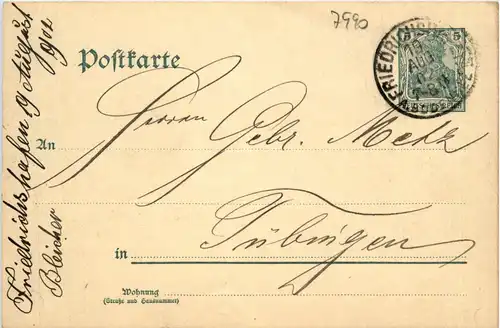 7990
Postkarte
5 5
FRIEDRICHSHAFEN
AUG
An Herren Gebr. Metz
in Tübingen
Wohnung
(Straße und Hausnummer)
Friedrichshafen 9 August 1902
Bleicher